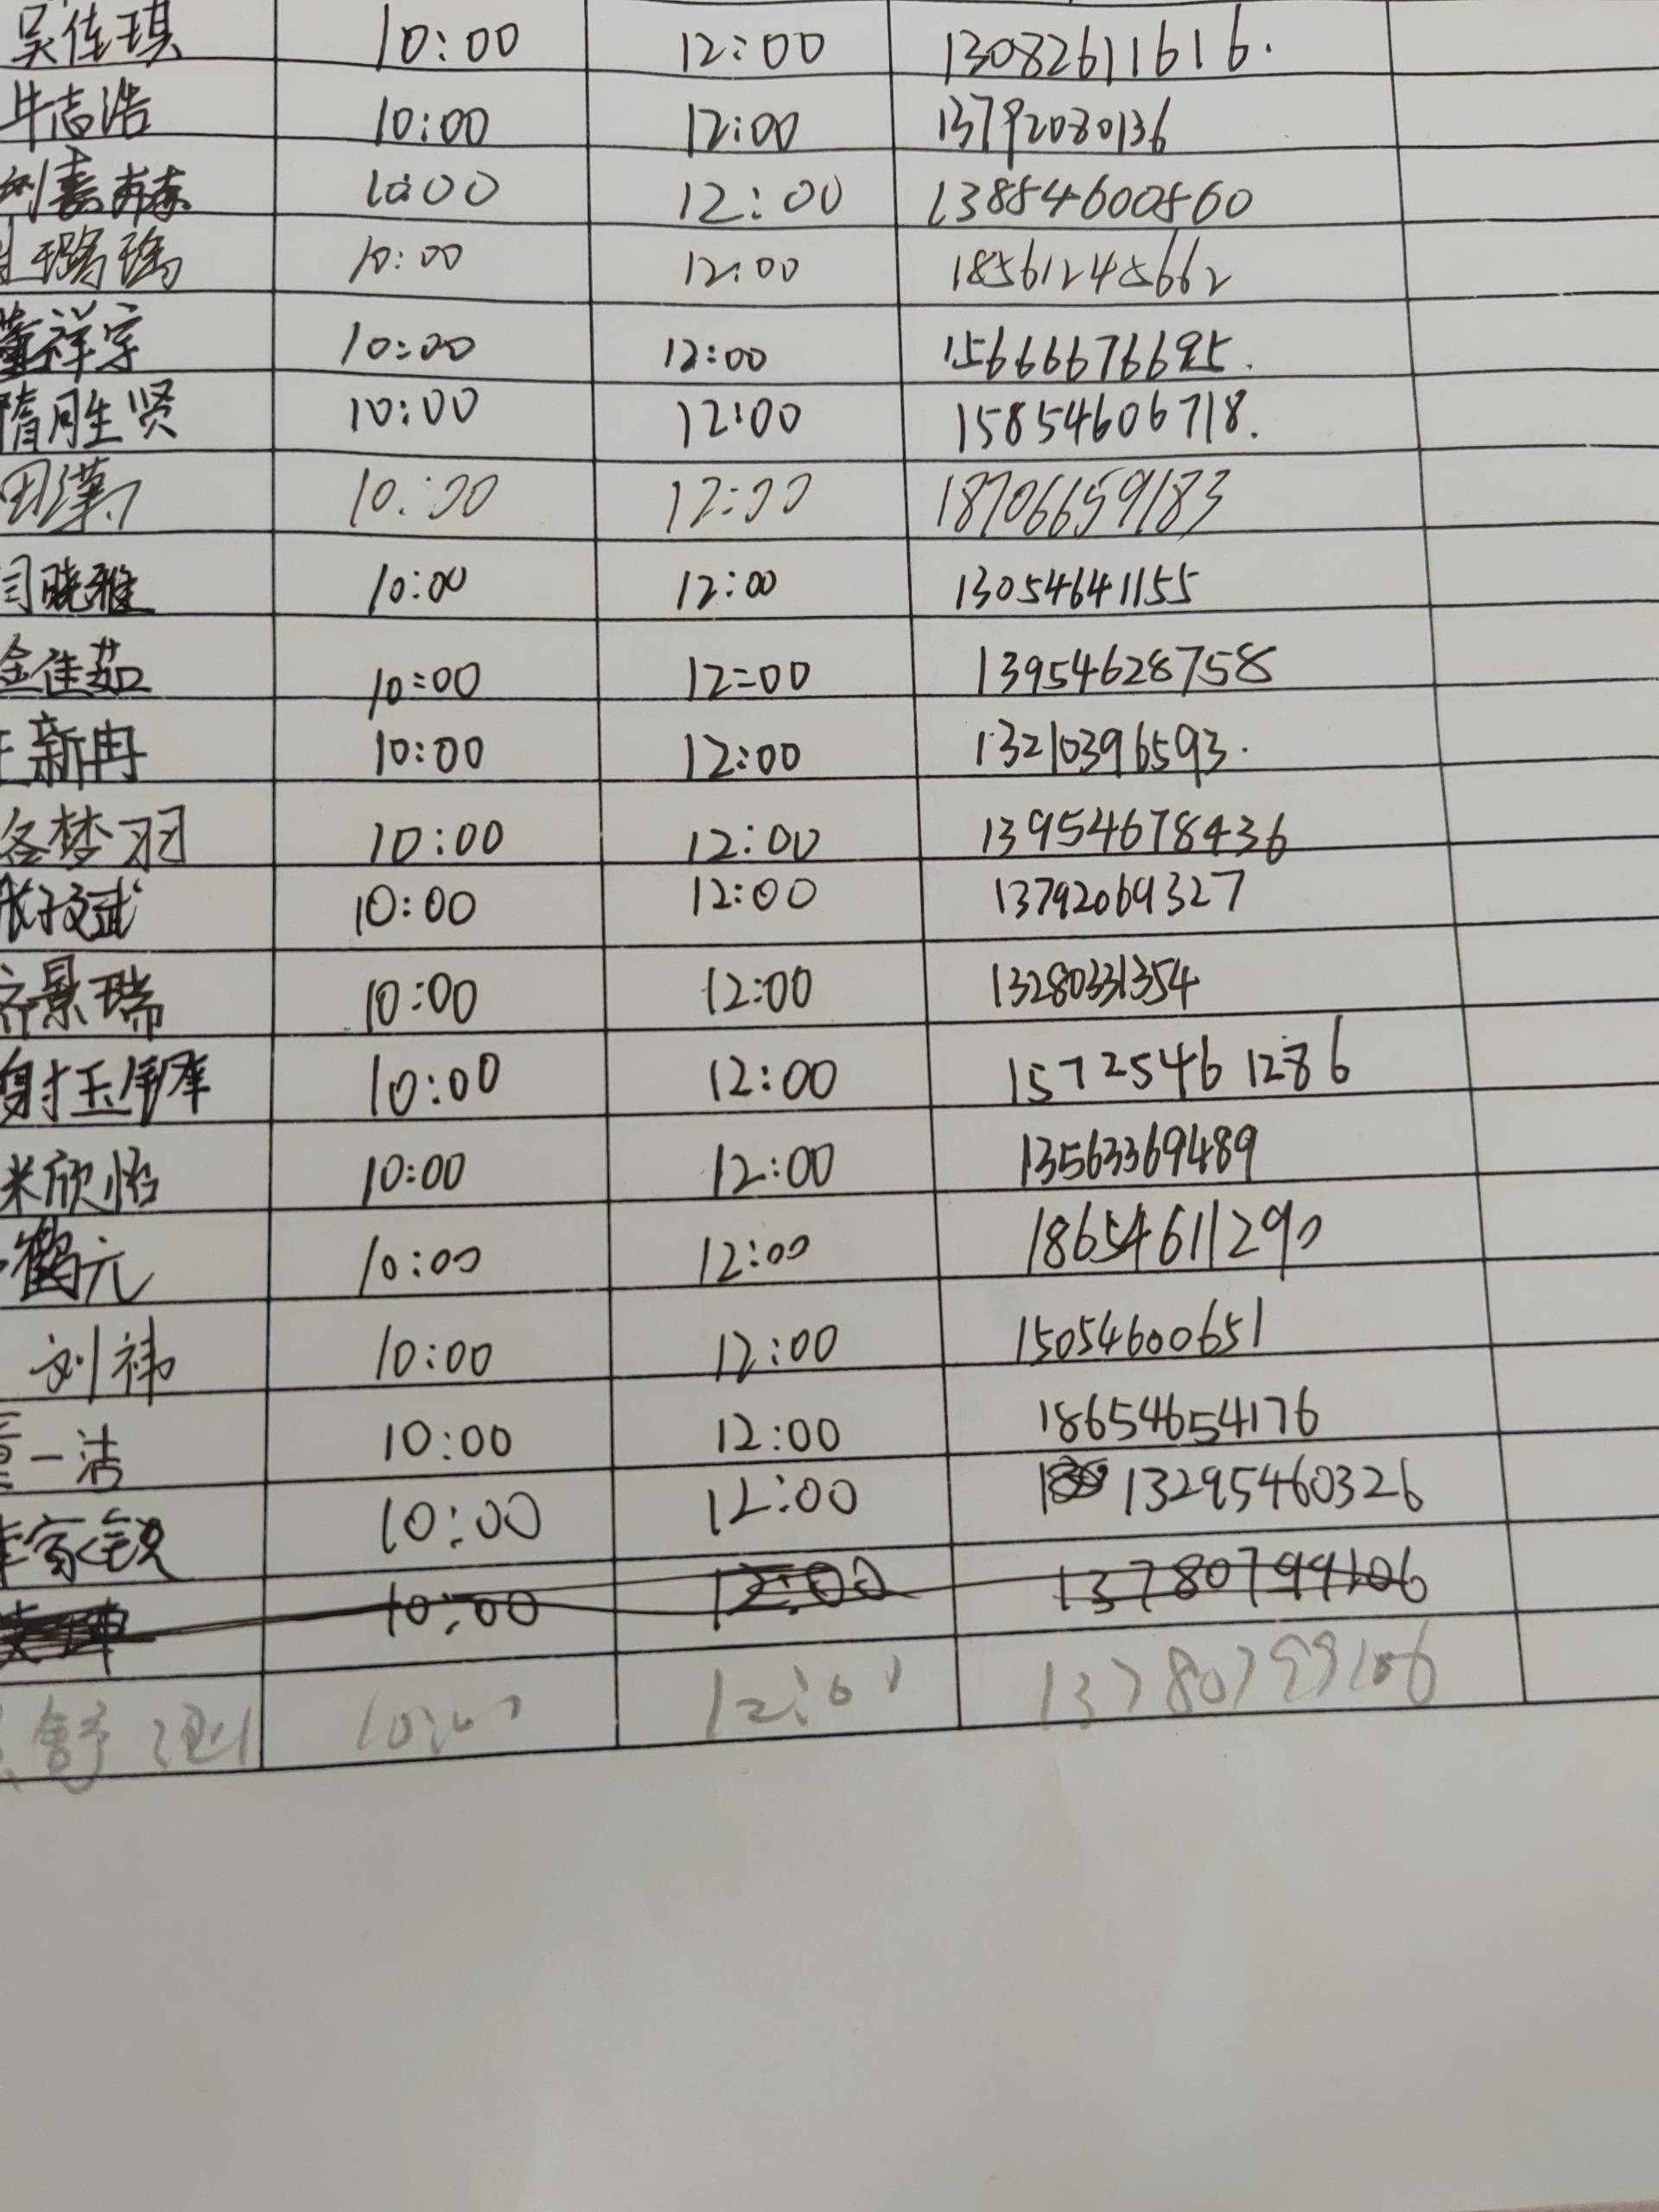 吴佳琪 10:00 12:00 13082611616.
牛志浩 10:00 12:00 13792080136
10:00 12:00 13884600860
璐瑶 10:00 12:00 18561248662
董祥宇 10:00 12:00 15666676695.
隋胜贤 10:00 12:00 15854606718.
田 10:00 12:00 18706659183
闫晓雅 10:00 12:00 13054641155
金佳茹 10:00 12:00 13954628758
王新冉 10:00 12:00 13210396593.
梦羽 10:00 12:00 13954678436
张 斌 10:00 12:00 13792069327
齐景瑞 10:00 12:00 13280331354
10:00 12:00 15725461286
米欣怡 10:00 12:00 13563369489
鹤元 10:00 12:00 18654611290
刘祎 10:00 12:00 15054600651
董一洁 10:00 12:00 18654654176
李家锐 10:00 12:00 13295460326
10:00 12:00 13780799106
舒 10:00 12:00 13780799106